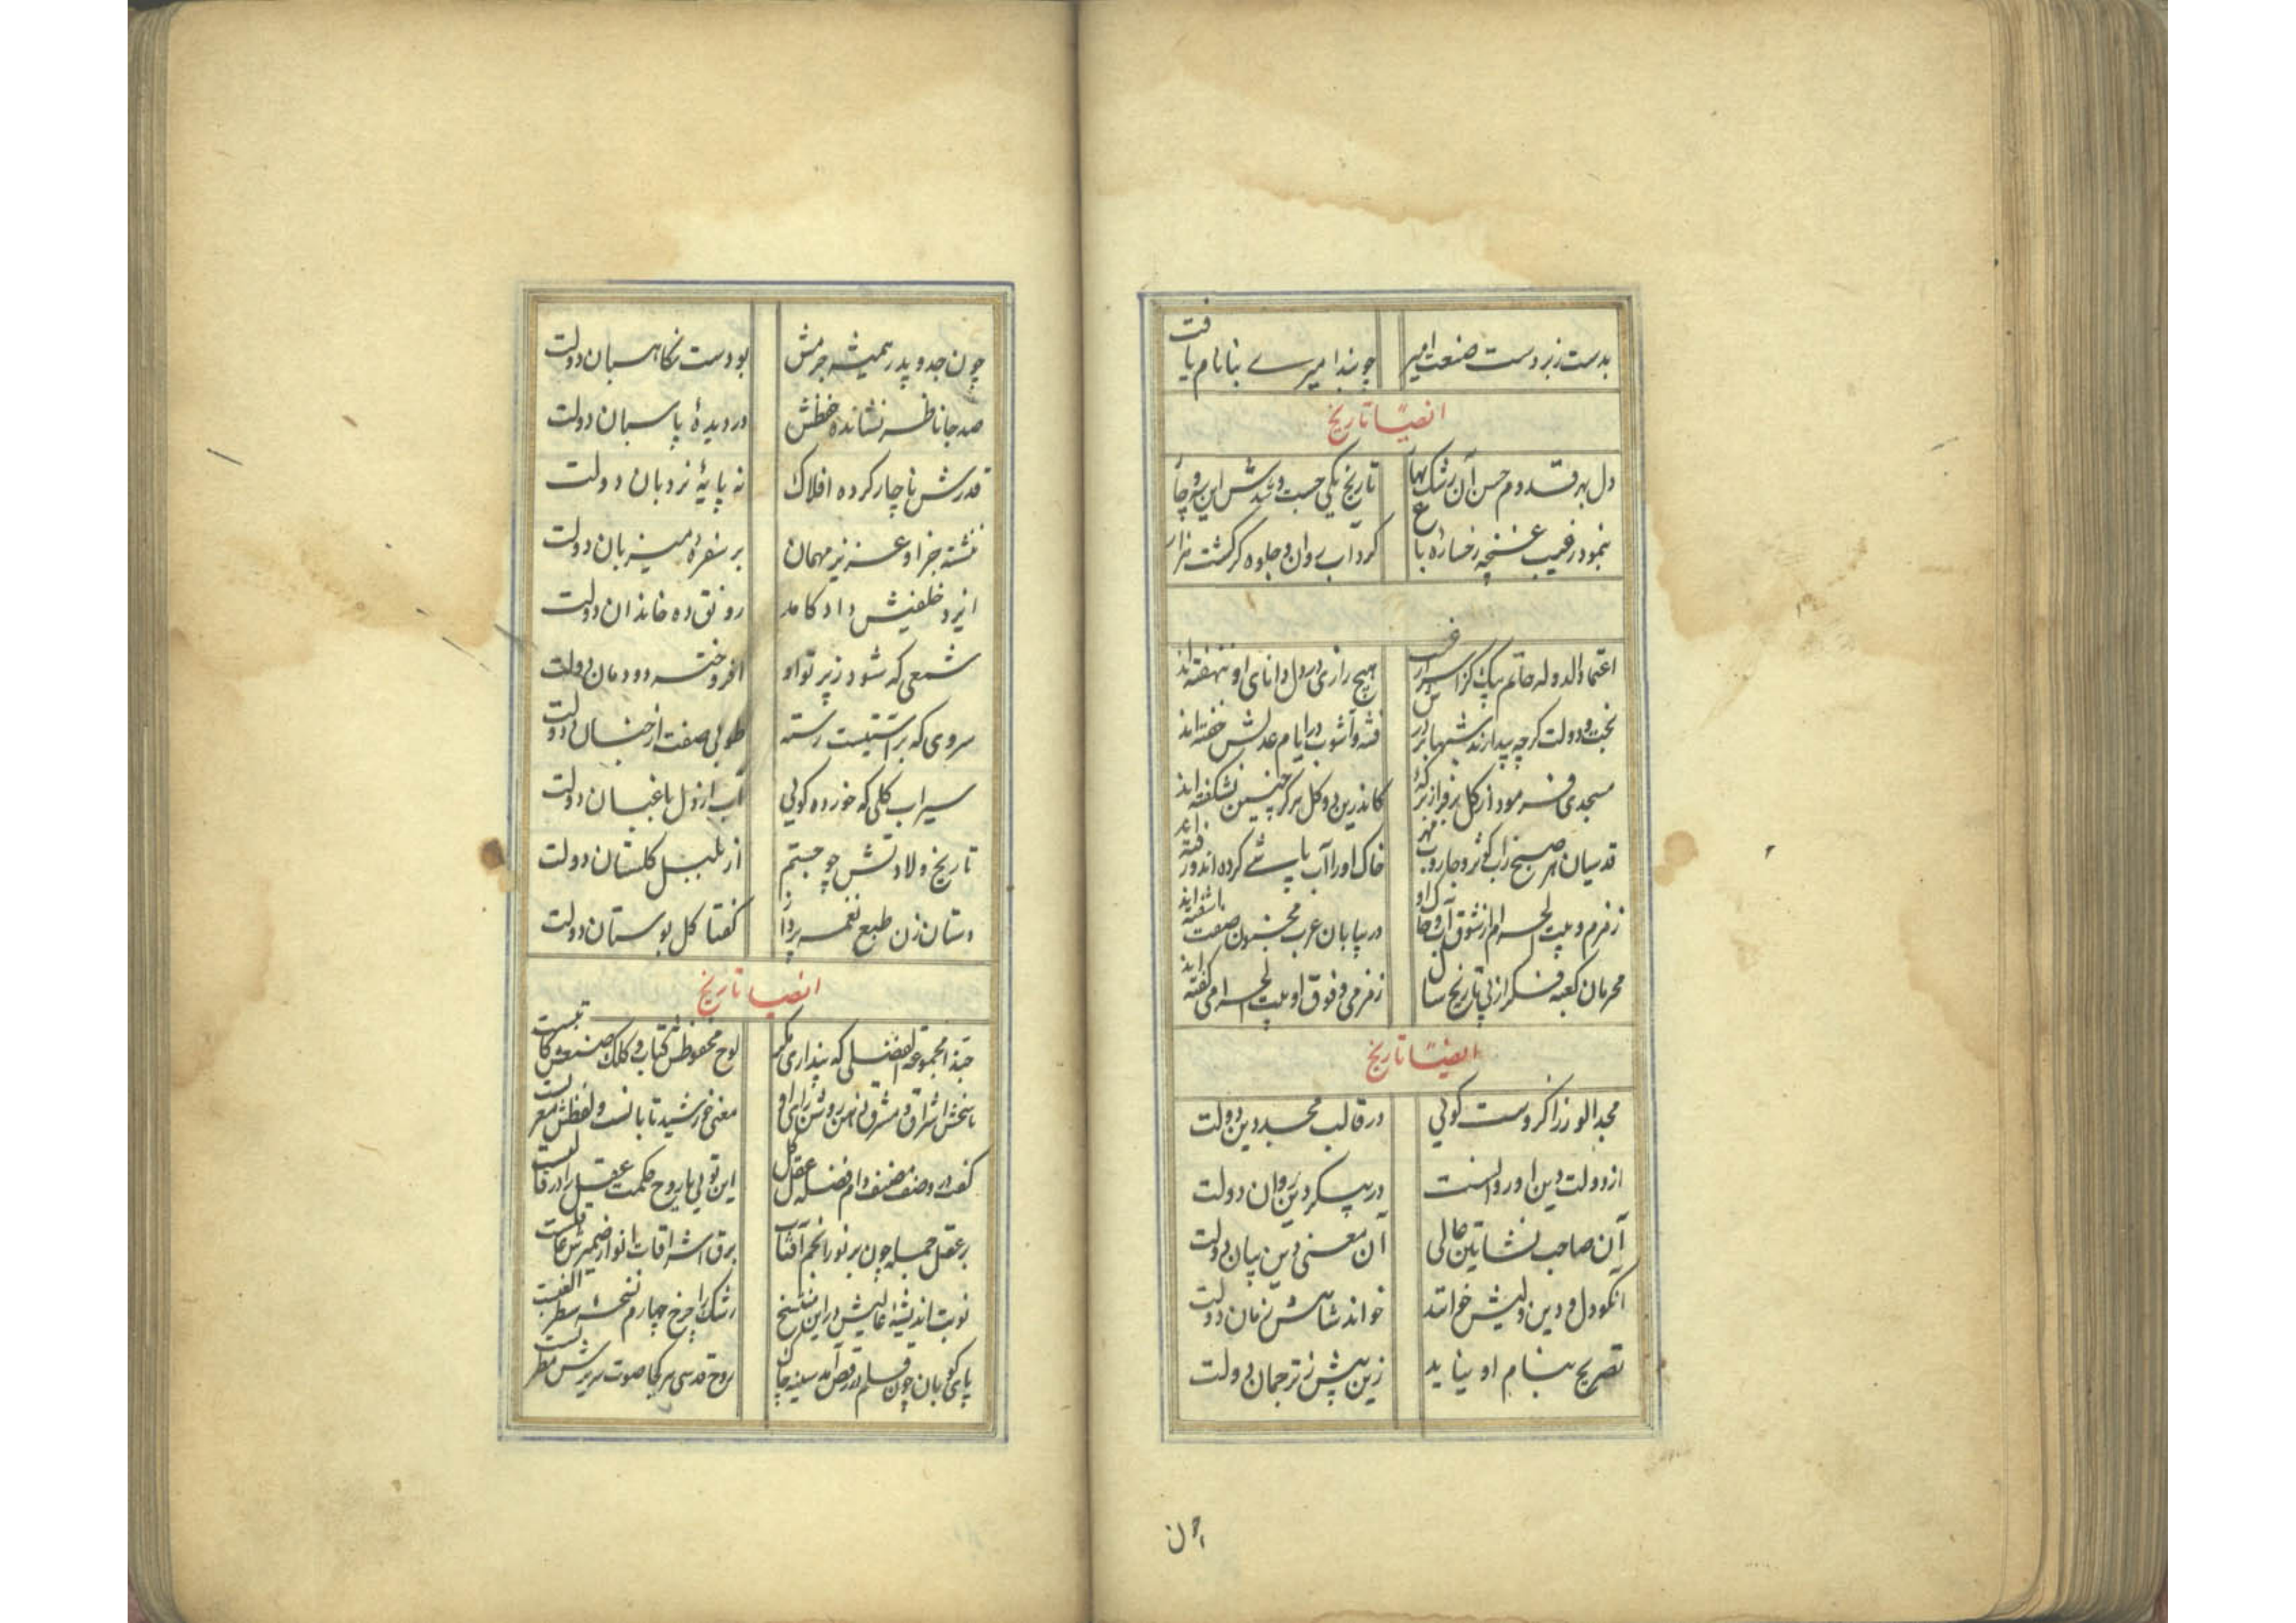 بدست زبردست صنعت امیر چو بندامیرے بنا نام یافت
ایضاً تاریخ
دل بهر قدوم حسن آن رشک بهار تاریخ یکی جست و شدش این رو چار
بنمود ز غیب غنچه رخساره باغ کرد آب روان و جلوه گر گشت هزار
اعتماد الدوله حاتم بیک کز اسرار غیب هیچ رازی در دل دانای او ننهفته‌اند
بخت و دولت گرچه بیدارند شبها بر درش فتنه و آشوب در ایام عدلش خفته‌اند
مسجدی فرمود از گل بر فراز برکهٔ کاندرین ده گل هرگز چنین نشکفته‌اند
قدسیان هر صبح زاب کوثر و جاروب مهر خاک او را آب پاشے کرده‌اند و رفته‌اند
زمزم و بیت الحرام از شوق آب و خاک او در بیابان عرب مجنون صفت آشفته‌اند
محرمان کعبه فکر از پی تاریخ سال زمزمی و فوق او بیت الحرامی گفته‌اند
ایضاً تاریخ
مجد الوزرا کزوست گویی در قالب مجد دین دولت
از دولت دین او روانست در پیکر دین روان دولت
آن صاحب نشاتین عالی آن معنی دین بیان دولت
آنکو دل و دین ولیش خوانند خواند شاهش زمان دولت
تصریح بنام او بیاید زین پیش ز ترجمان دولت
چون
چون جد و پدر همیشه جرمش بودست نگاهبان دولت
صد جا ناظر نشانده حفظش در دیدهٔ پاسبان دولت
قدرش ناچار کرده افلاک نه پایهٔ نردبان دولت
ننشسته جز او عزیز مهمان بر سفرهٔ میزبان دولت
ایزد خلفیش داد کامد رونق ده خاندان دولت
شمعی که شود ز پرتو او افروخته دودمان دولت
سروی که براستیست رسته طوبی صفت از جنان دولت
سیراب گلی که خورده گویی آب از دل باغبان دولت
تاریخ ولادتش چو جستم از بلبل گلستان دولت
دستان زن طبع نغمه پرداز گفتا گل بوستان دولت
ایضاً تاریخ
حبذا مجموعهٔ فضلی که پنداری مگر لوح محفوظش کتاب و کلک صنعش کاتبست
بخش اشراق و مشرق ذهن روشن رای او معنی خورشید تابانست و لفظش مغربست
گفت در وصف مصنف دام فضله عقل کل این تویی یا روح حکمت عقل را در قالبست
بر عقل جمله چون بر نور انجم آفتاب برق اشراقات انوار ضمیرش غالبست
نوبت اندیشهٔ عالیش در این نسخ رشک را چرخ چهارم نسخهٔ سطر
پای کوبان چون قلم در رقص آمد سینه چاک روح قدسی هر کجا صوت سریرش مطربست